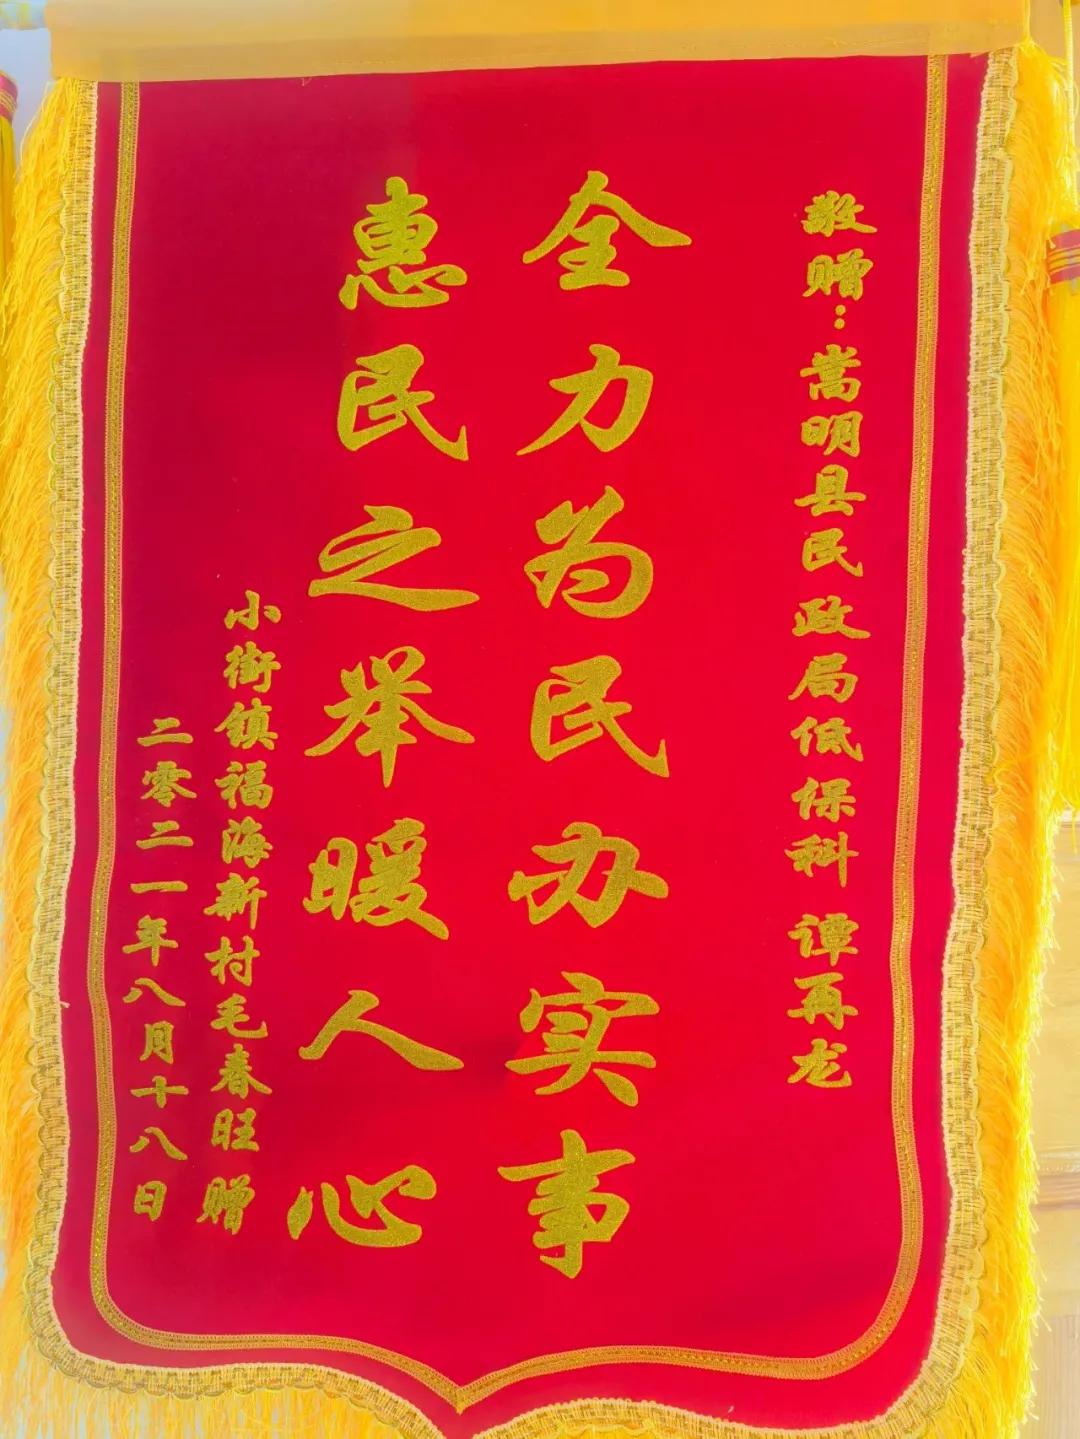 敬赠：嵩明县民政局低保科 谭再龙
全力为民办实事
惠民之举暖人心
小街镇福海新村毛春旺 赠
二零二一年八月十八日